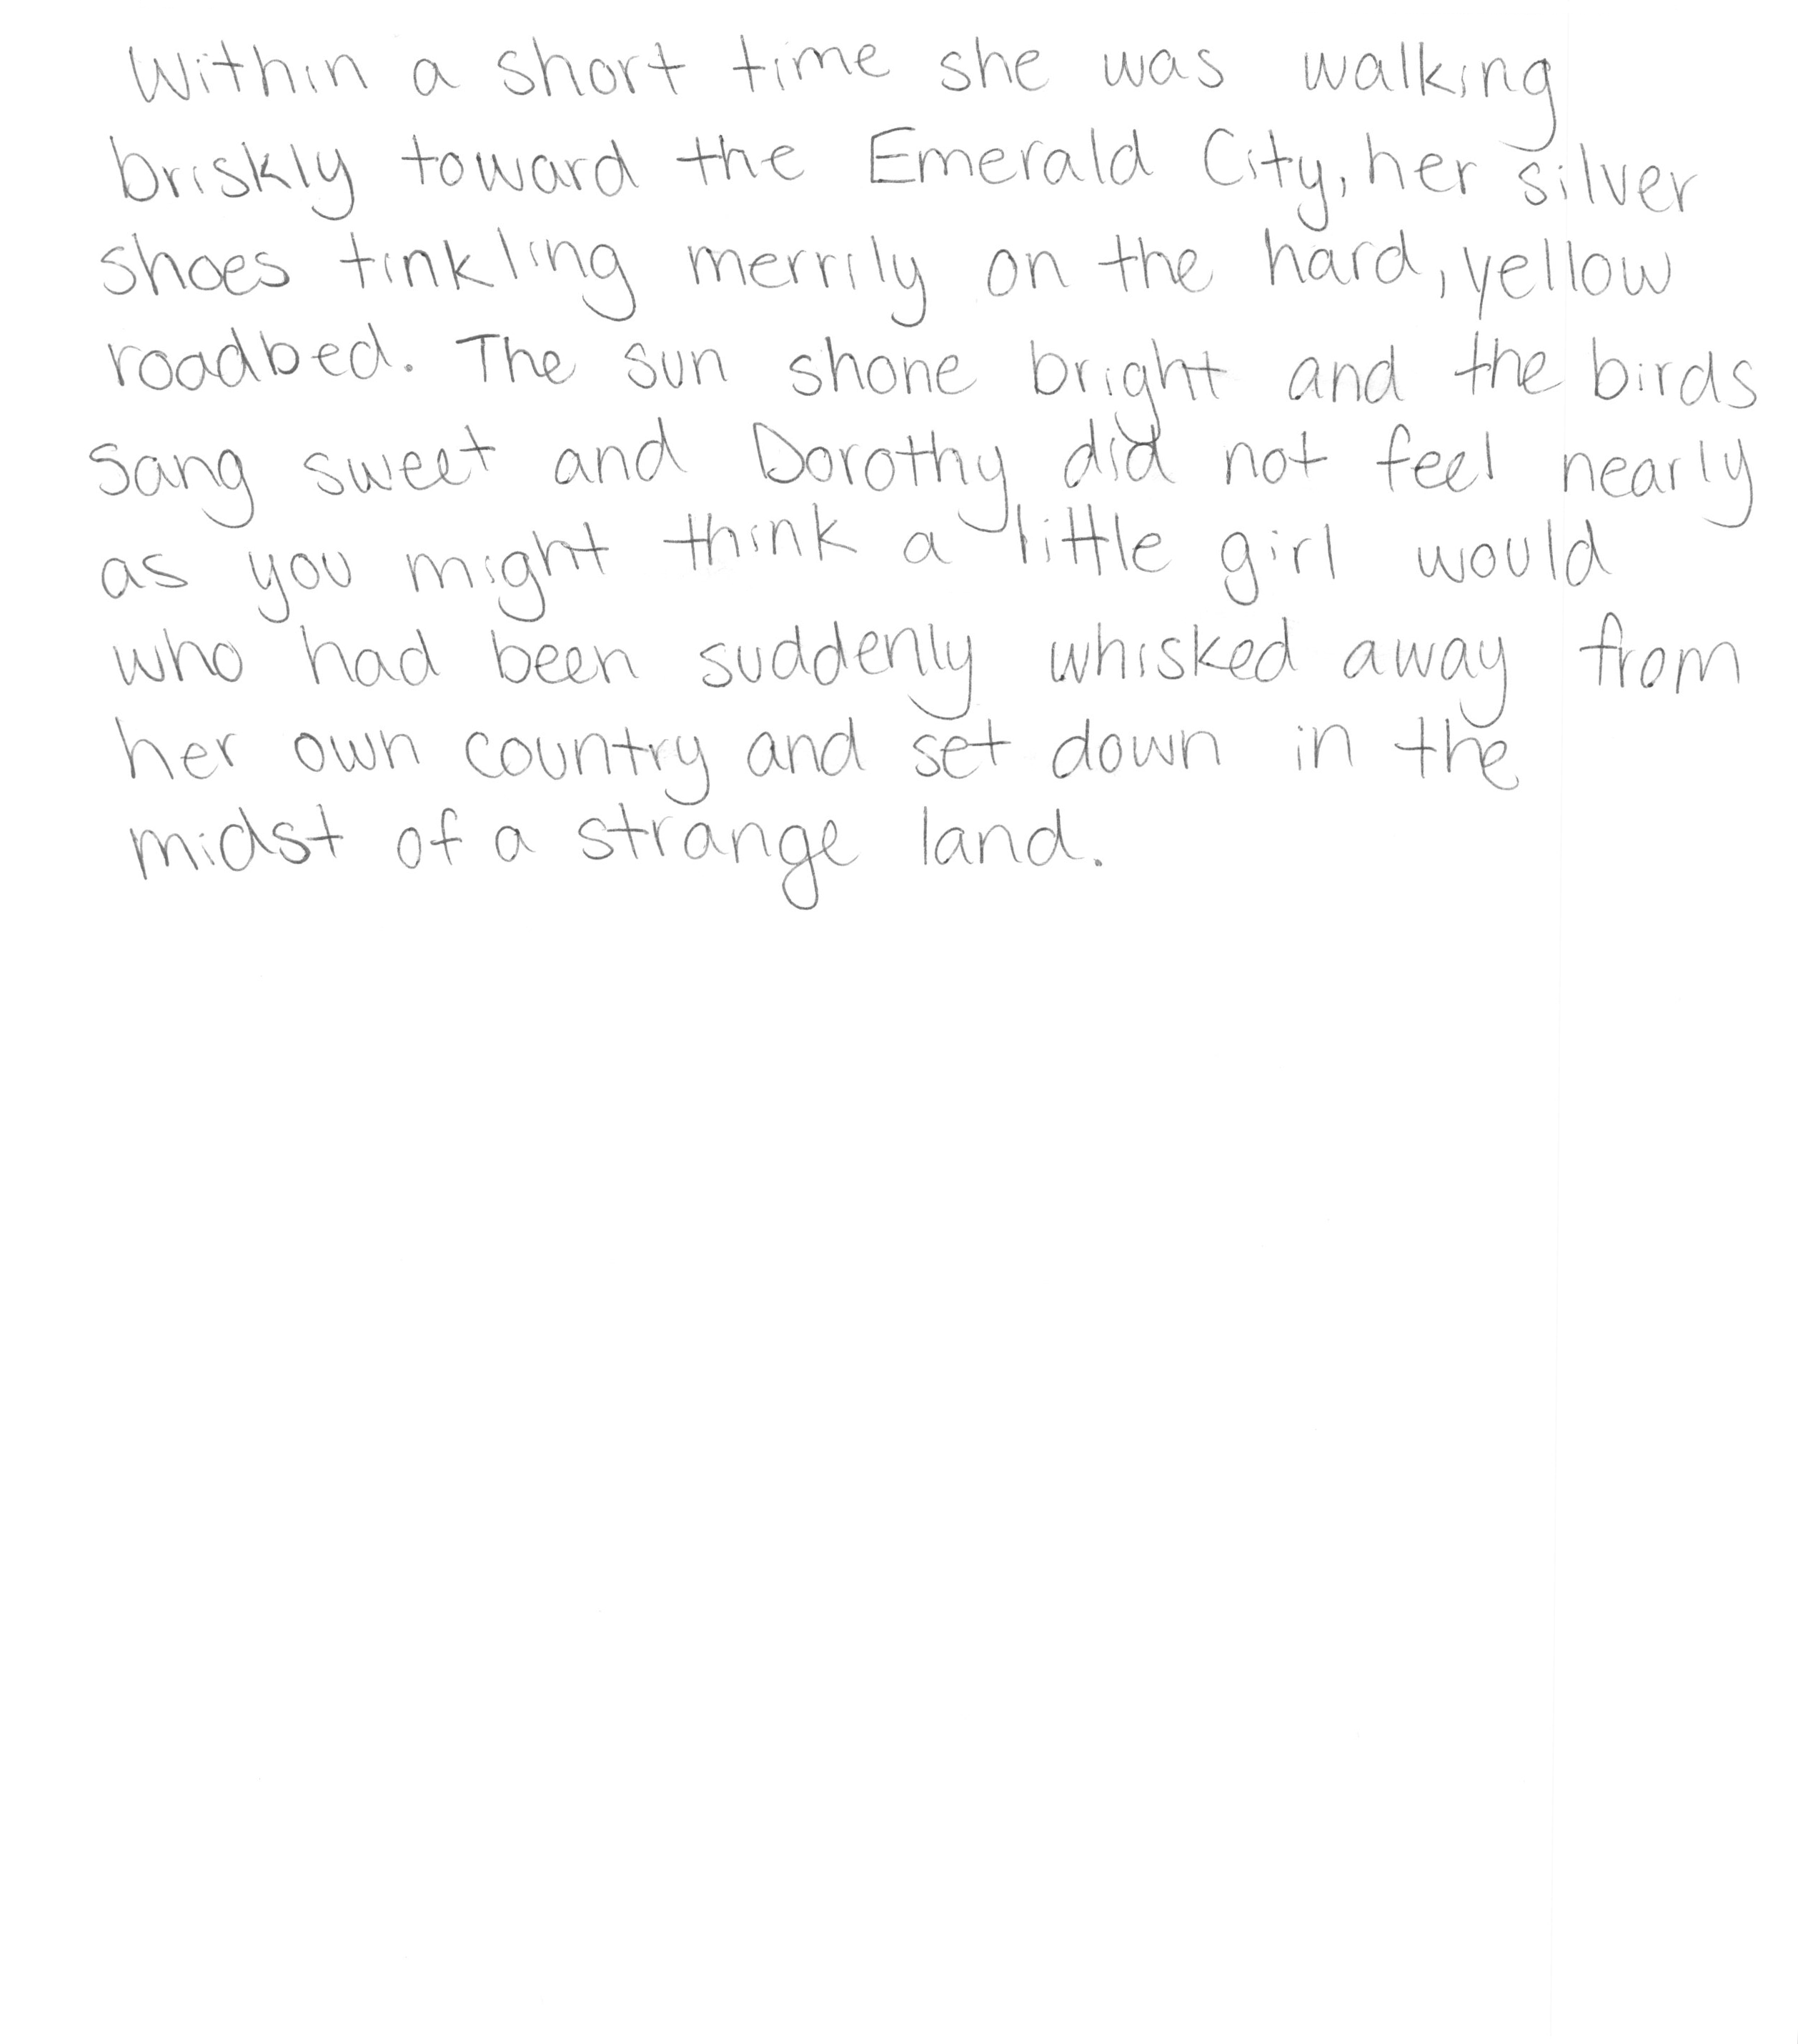 Within a short time she was walking
briskly toward the Emerald City, her silver
shoes tinkling merrily on the hard, yellow
roadbed. The sun shone bright and the birds
sang sweet and Dorothy did not feel nearly
as you might think a little girl would
who had been suddenly whisked away from
her own country and set down in the
midst of a strange land.